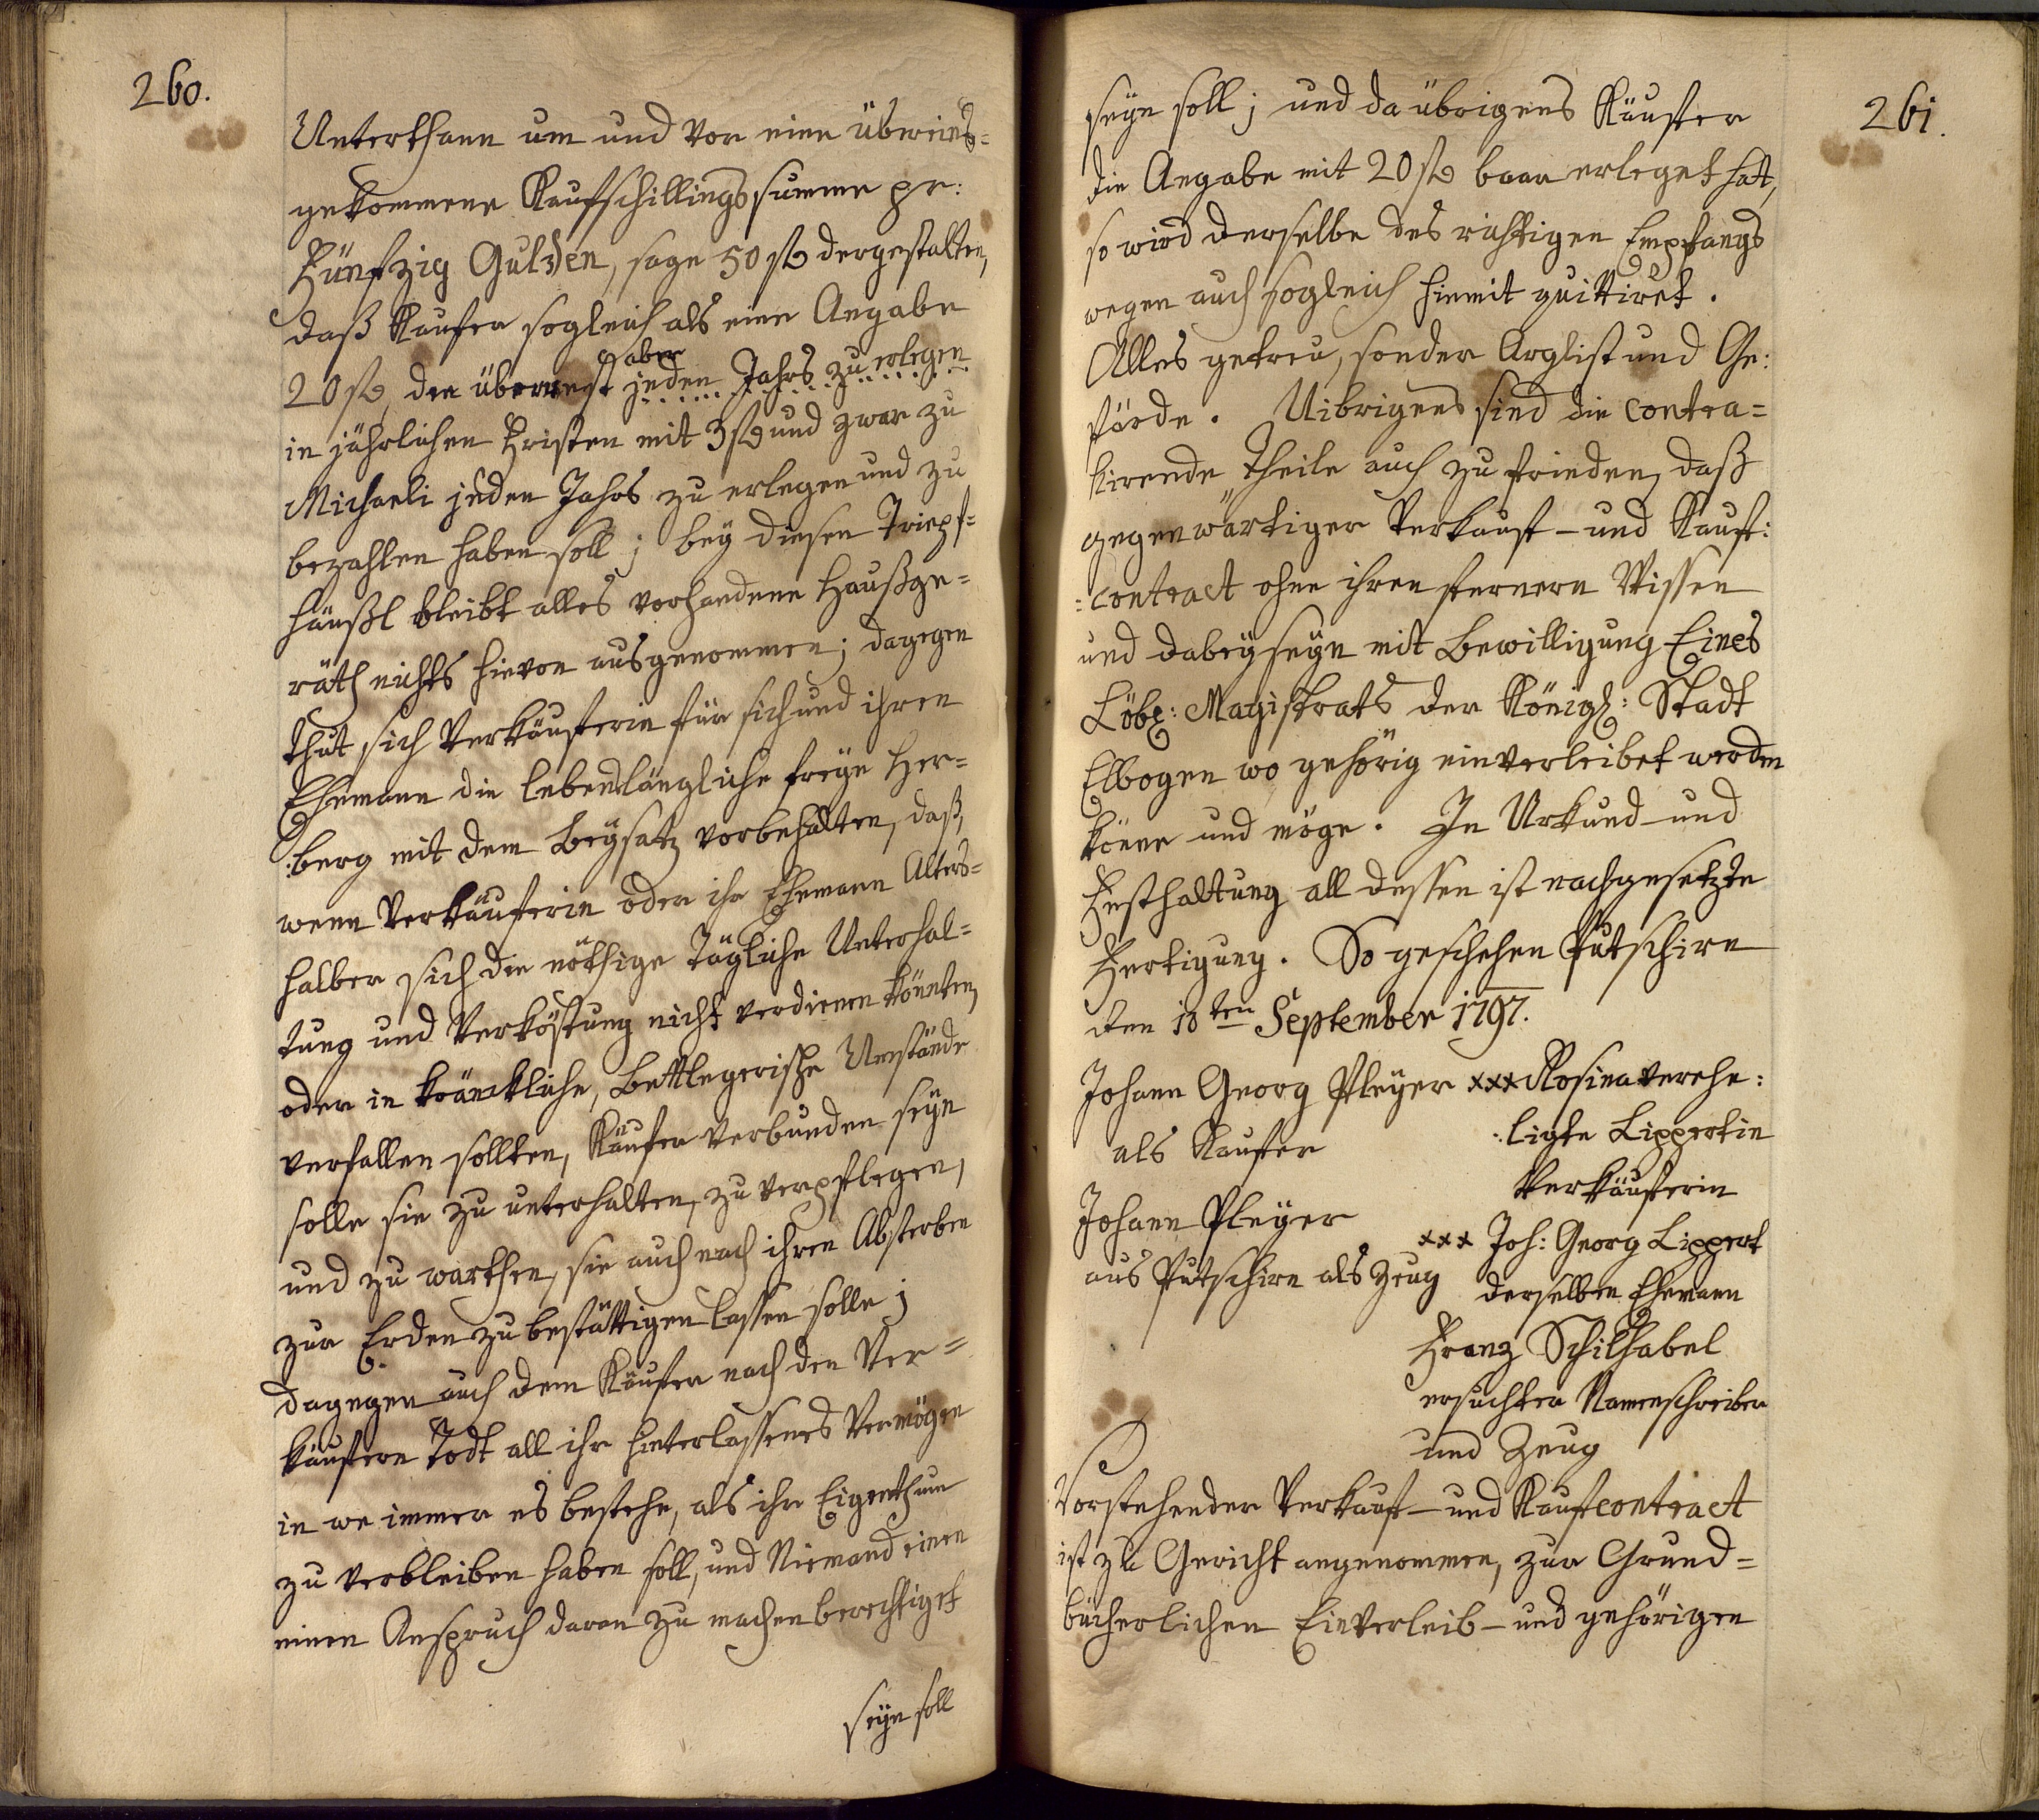 260.
Unterthann um und vor eine übereins=
gekommene Kaufschillingssumme pr:
Fünfzig Gulden, sage 50 fl dergestalten,
daß Kaufer sogleich als eine Angabe
20 fl, den überrest aber jeden Jahrs zu erlegen
in jährlichen Fristen mit 3 fl und zwar zu
Michaeli jeden Jahrs zu erlegen und zu
bezahlen haben soll; bey diesen
häußl bleibt alles vorhandene Haußge=
räth nichts hievon ausgenommen; dagegen
thut sich Verkäuferin für sich und ihren
Ehemann die lebenslängliche freye Her=
:berg mit dem Beysatz vorbehalten, daß,
wenn Verkäuferin oder ihr Ehemann Alters=
halber sich die nöthige tägliche Unterhal=
tung und Verköstung nicht verdienen könnten,
oder in kränckliche, Bettlegerische Umstände
verfallen sollten, Käufer verbunden seyn
solle sie zu unterhalten, zu verpflegen,
und zu warthen, sie auch nach ihren Absterben
zur Erden zu bestättigen lassen solle;
dagegen auch dem Käufer nach den Ver=
käufern Todt all ihr hinterlassenes Vermögen
in we immer es bestehe, als ihr Eigenthum
zu verbleiben haben soll, und Niemand einen
einen Anspruch daran zu machen berechtiget
seyn soll
261.
seyn soll; und da übrigens Käufer
die Angabe mit 20 fl baar erleget hat,
so wird derselbe des richtigen Empfangs
wegen auch sogleich hiemit quittiret.
Alles getreu, sonder Arglist und Ge:
färde. Uibrigens sind die contra=
hirende Theile auch zu frieden, daß
gegenwärtiger Verkauf- und Kauf:
:contract ohne ihren fernern Wissen
und dabeyseyn mit Bewilligung Eines
Löbl: Magistrats der Königl: Stadt
Elbogen wo gehörig einverleibet werden
könne und möge. In Urkund- und
Festhaltung all dessen ist nachgesetzte
Fertigung. So geschehen Putschirn
den 18ten September 1797.
Johann Georg Pleyer xxx Rosina verehe:
als Kaufer :ligte Lippertin
Verkäuferin
Johann Pleyer xxx Joh: Georg Lippert
aus Putschirn als Zeug derselben Ehemann
Franz Schilhabel
ersuchter Namenschreiber
und Zeug
Vorstehender Verkauf- und Kaufcontract
ist zu Gericht angenommen, zur Grund=
bücherlichen Einverleib- und gehörigen